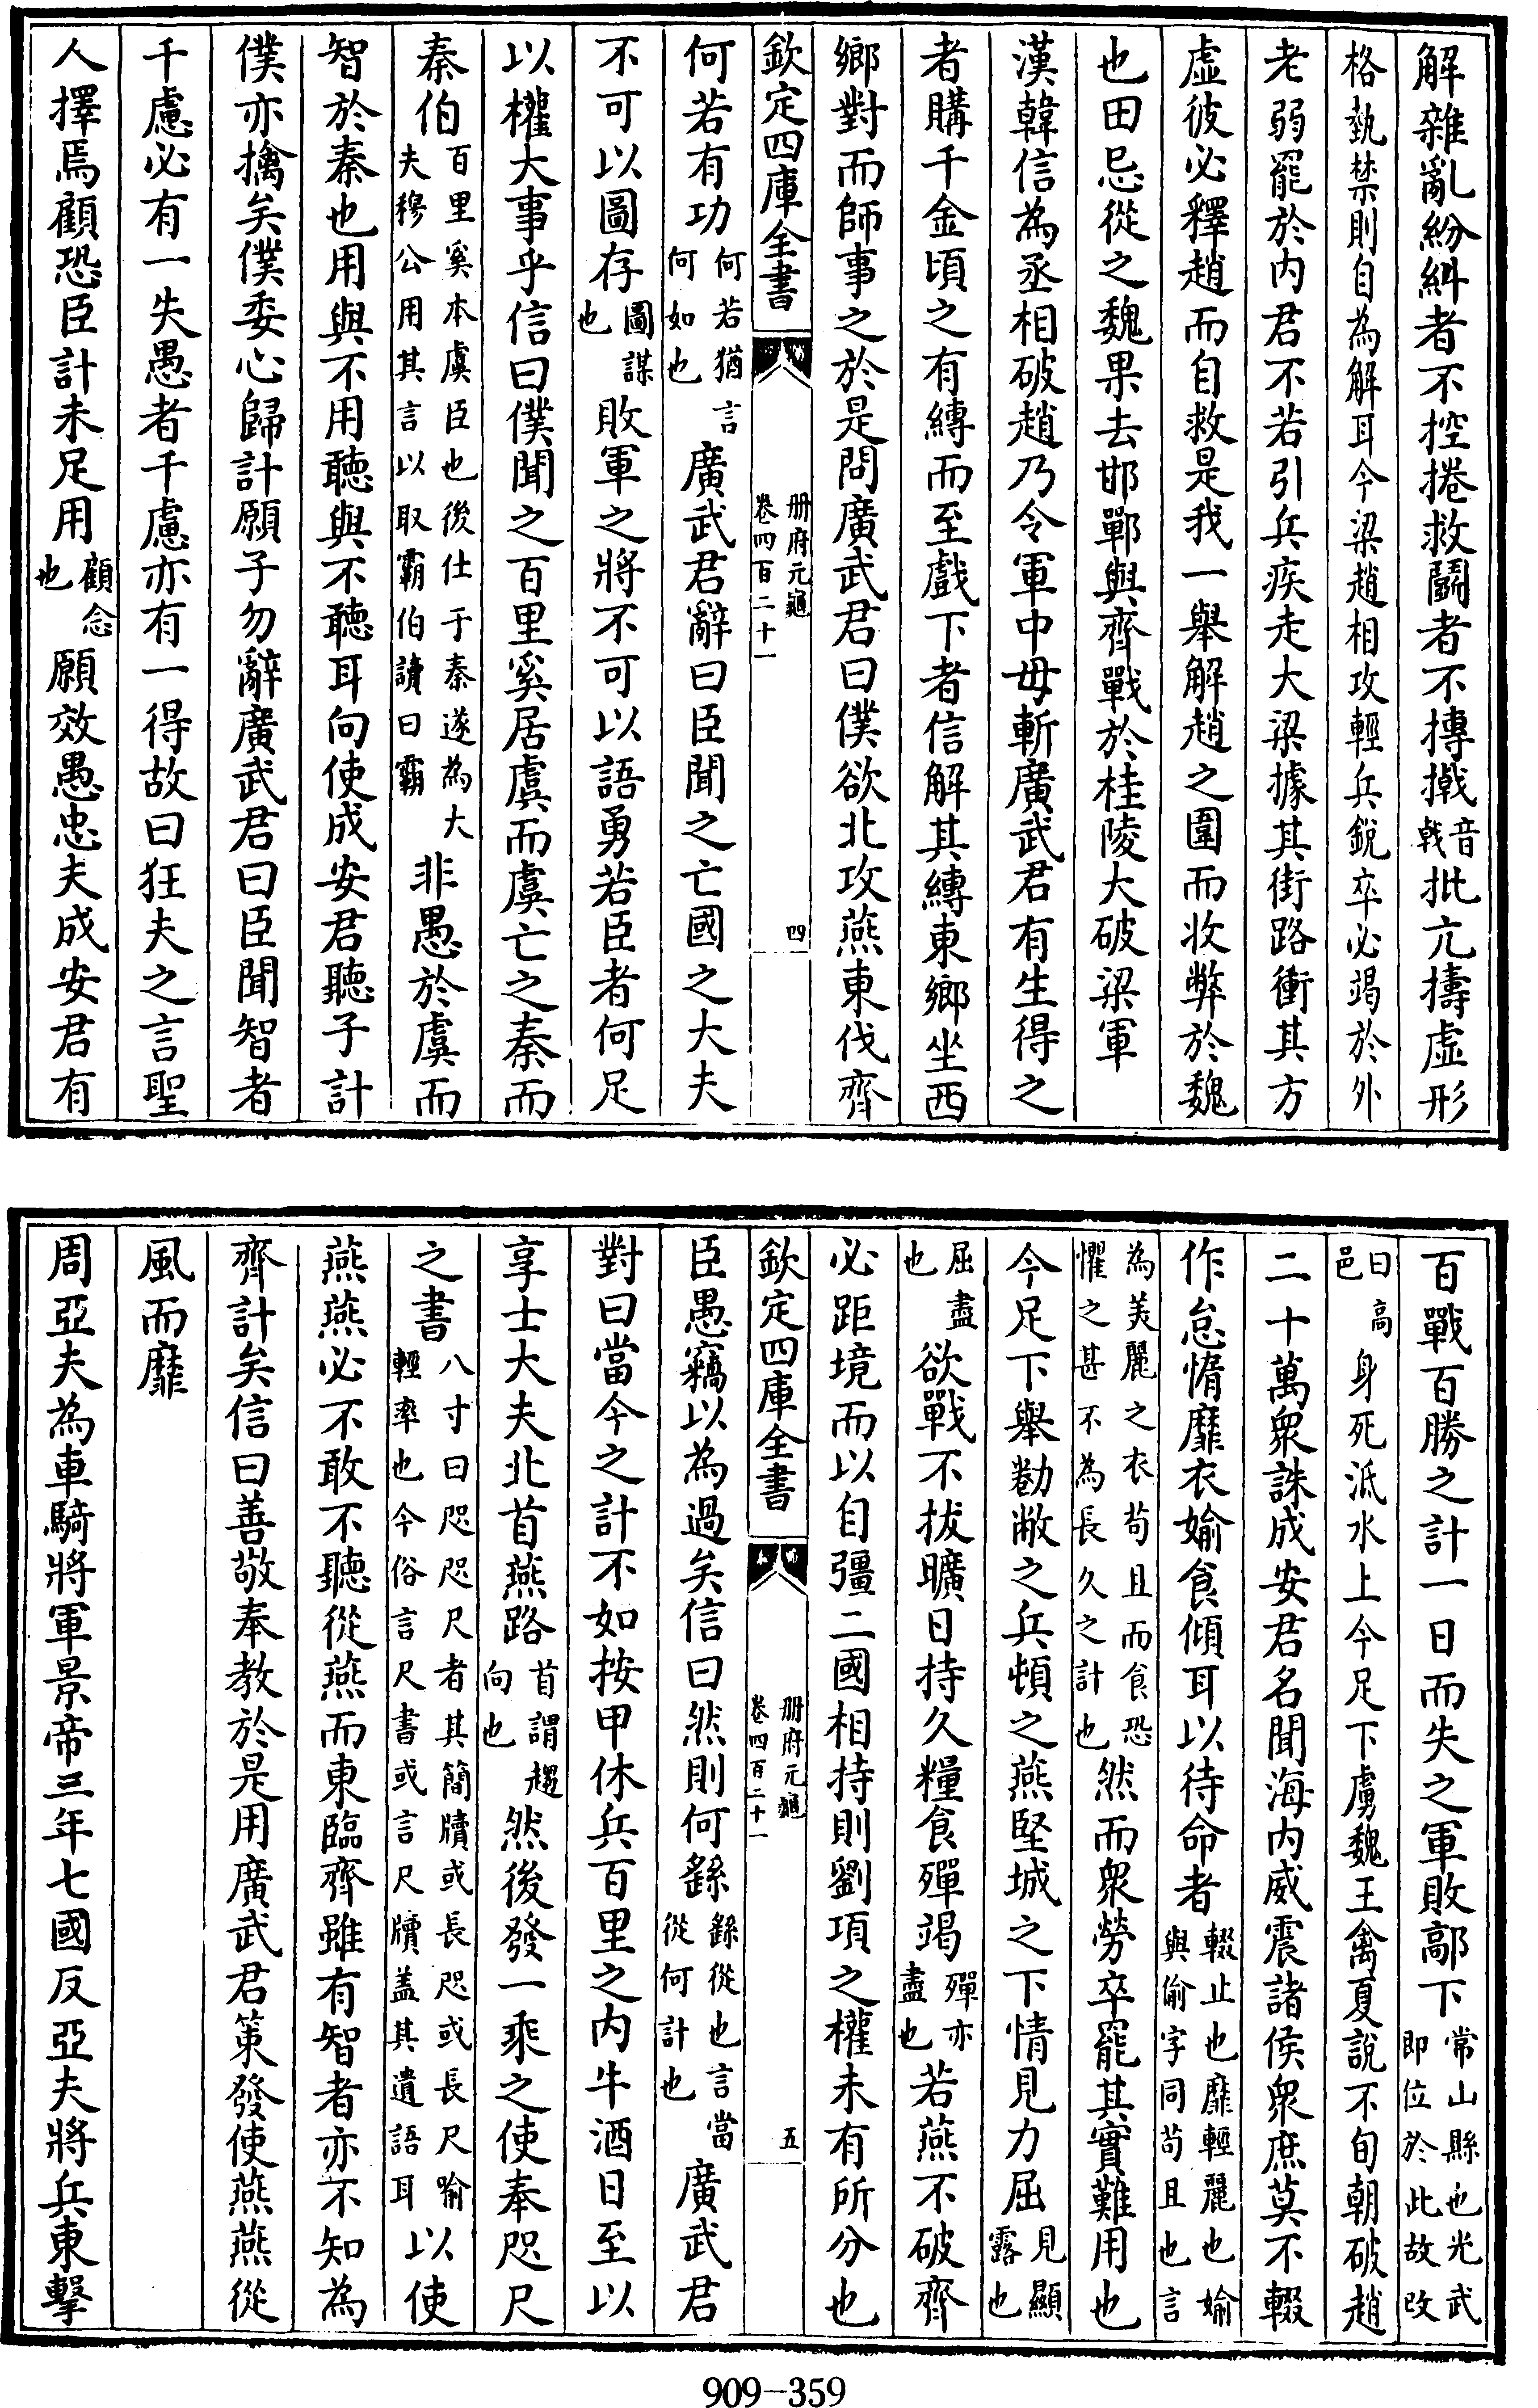 解雜亂紛糾者不控捲救鬭者不摶撠音戟批亢擣虛形
格埶禁則自為解耳今梁趙相攻輕兵銳卒必竭於外
老弱罷於內君不若引兵疾走大梁據其街路衝其方
虛彼必釋趙而自救是我一舉解趙之圍而收弊於魏
也田忌從之魏果去邯鄲與齊戰於桂陵大破梁軍
漢韓信為丞相破趙乃令軍中毋斬廣武君有生得之
者購千金頃之有縛而至戲下者信解其縛東鄉坐西
鄉對而師事之於是問廣武君曰僕欲北攻燕東伐齊
欽定四庫全書 冊府元龜 卷四百二十一 四
何若有功何若猶言何如也廣武君辭曰臣聞之亡國之大夫
不可以圖存圖謀也敗軍之將不可以語勇若臣者何足
以權大事乎信曰僕聞之百里奚居虞而虞亡之秦而
秦伯百里奚本虞臣也後仕于秦遂為大夫穆公用其言以取霸伯讀曰霸非愚於虞而
智於秦也用與不用聽與不聽耳向使成安君聽子計
僕亦擒矣僕委心歸計願子勿辭廣武君曰臣聞智者
千慮必有一失愚者千慮亦有一得故曰狂夫之言聖
人擇焉顧恐臣計未足用顧念也願效愚忠夫成安君有
百戰百勝之計一日而失之軍敗鄗下常山縣也光武即位於此故改
曰高邑身死泜水上今足下虜魏王禽夏說不旬朝破趙
二十萬衆誅成安君名聞海內威震諸侯衆庶莫不輟
作怠惰靡衣媮食傾耳以待命者輟止也靡輕麗也媮與偷字同苟且也言
為美麗之衣苟且而食恐懼之甚不為長久之計也然而衆勞卒罷其實難用也
今足下舉勌敝之兵頓之燕堅城之下情見力屈見顯露也
屈盡也欲戰不拔曠日持久糧食殫竭殫亦盡也若燕不破齊
必距境而以自彊二國相持則劉項之權未有所分也
欽定四庫全書 冊府元龜 卷四百二十一 五
臣愚竊以為過矣信曰然則何繇繇從也言當從何計也廣武君
對曰當今之計不如按甲休兵百里之內牛酒日至以
享士大夫北首燕路首謂趨向也然後發一乘之使奉咫尺
之書八寸曰咫咫尺者其簡牘或長咫或長尺喻輕率也今俗言尺書或言尺牘蓋其遺語耳以使
燕燕必不敢不聽從燕而東臨齊雖有智者亦不知為
齊計矣信曰善敬奉教於是用廣武君策發使燕燕從
風而靡
周亞夫為車騎將軍景帝三年七國反亞夫將兵東擊
909-359